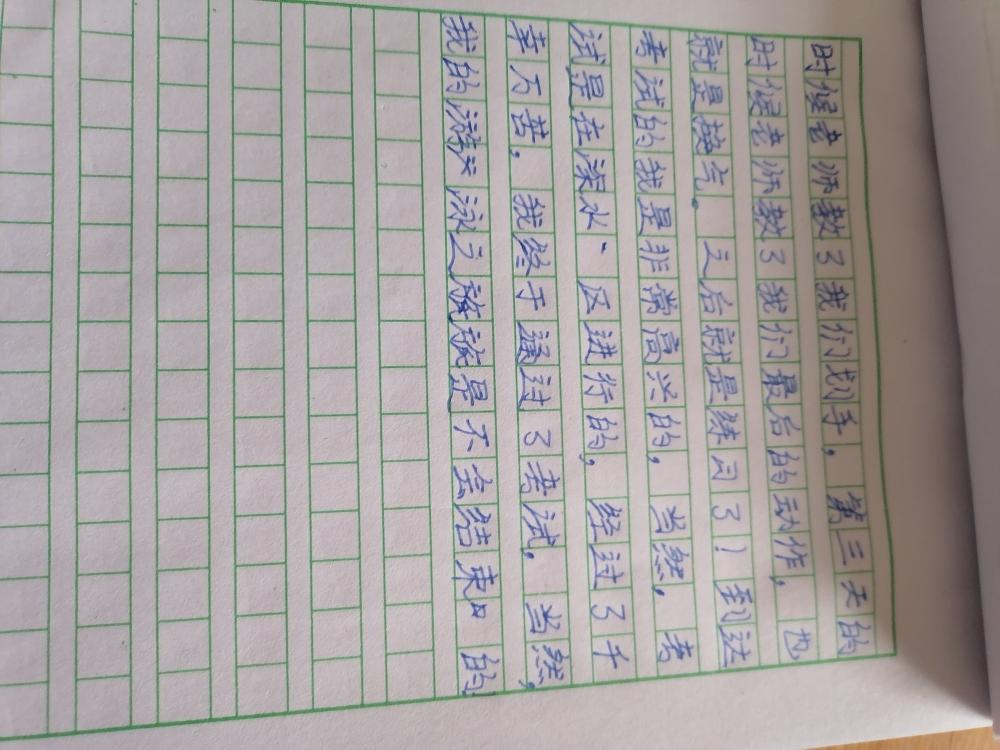 时候老师教了我们划手，第三天的
时候老师教了我们最后的动作，也
就是换气。之后就是练习了！到达
考试的我是非常高兴的，当然，考
试是在深水、区进行的，经过了千
辛万苦，我终于通过了考试，当然，
我的游泳之旅旅是不会结束的